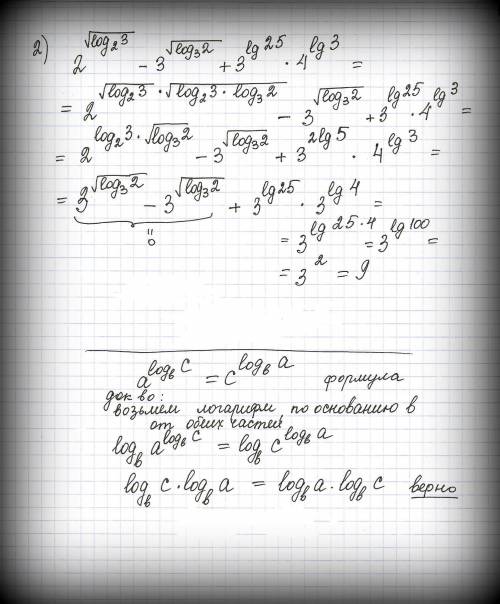 2) 2^√(log₂3) − 3^√(log₃2) + 3^(lg25) · 4^(lg3) =
= 2^(√(log₂3) · √(log₂3 · log₃2)) − 3^√(log₃2) + 3^(lg25) · 4^(lg3) =
= 2^(log₂3 · √(log₃2)) − 3^√(log₃2) + 3^(2lg5) · 4^(lg3) =
= 3^√(log₃2) − 3^√(log₃2) + 3^(lg25) · 3^(lg4) =
"
0
= 3^(lg25·4) = 3^(lg100) =
= 3² = 9
a^(log_в c) = c^(log_в a) формула
док во:
возьмем логарифм по основанию в
от обеих частей
log_в a^(log_в c) = log_в c^(log_в a)
log_в c · log_в a = log_в a · log_в c верно